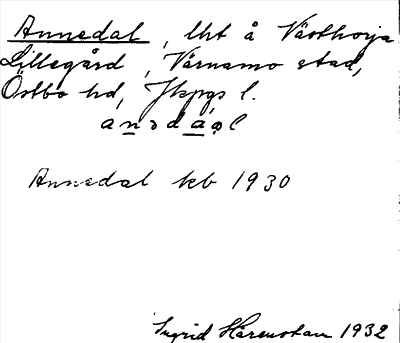 Annedal, lht å Västhorja
Lillegård, Värnamo stad,
Östbo hd, Jkpgs l.
anɔdaɷl
Annedal kb 1930
Ingrid Härenstam 1932